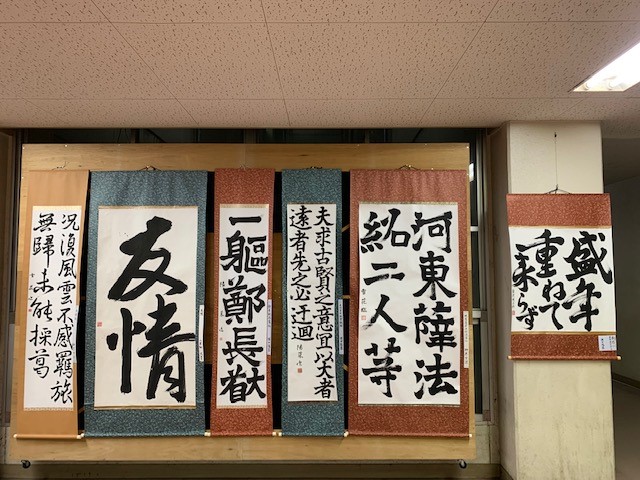 盛年
重ねて
来らず
河東薛法
紹二人等
夫求古賢之意宜以大者
遠者先之必迂迴
一軀鄭長猷
友情
况復風雲不感羇旅
無歸未能採葛